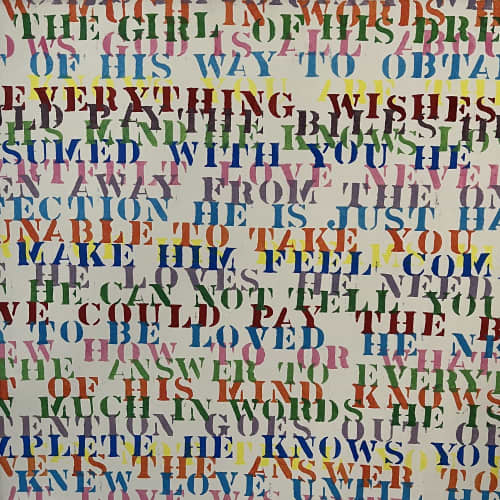 MUCH IN WORDS HE
THE GIRL OF HIS DRE
OWS GOD IS ALL ABOU
T OF HIS WAY TO OBTA
YOU ARE THE
EVERYTHING WISHES
LD PAY THE BILLS H
HIS MIND HE KNOWS
SUMED WITH YOU HE
LOVE NEVER
EN AWAY FROM THE O
ECTION HE IS JUST HA
UNABLE TO TAKE YOU
MAKE HIM FEEL COM
HE LOVES HE NEED
E HE CAN NOT TELL YOU
VE COULD PAY THE B
TO BE LOVED HE NE
EW HOW TO OR WHA
HE ANSWER TO EVERYT
T OF HIS MIND KNOWS
N MUCH IN WORDS HE IS
ENTION GOES OUT OF
MPLETE HE KNOWS YOU
E IS THE ANSWER TO
KNEW LOVE UNTIL